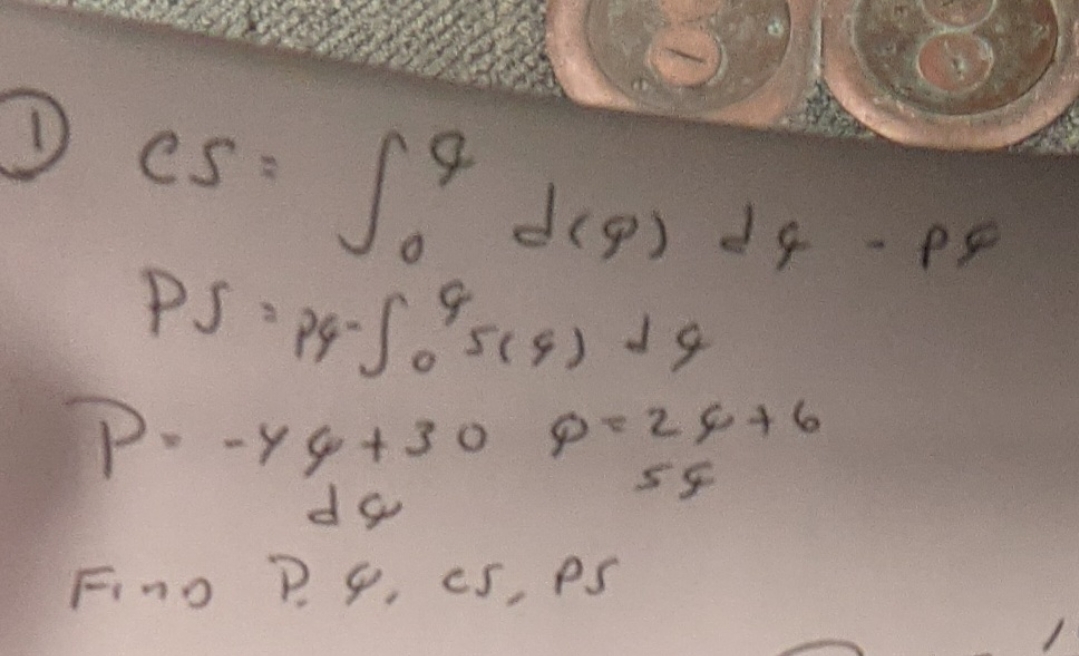 ① CS = ∫₀^q d(q) dq - pq
PS = pq - ∫₀^q s(q) dq
P = -4q + 30 p = 2q + 6
dq sq
Find P, q, CS, PS